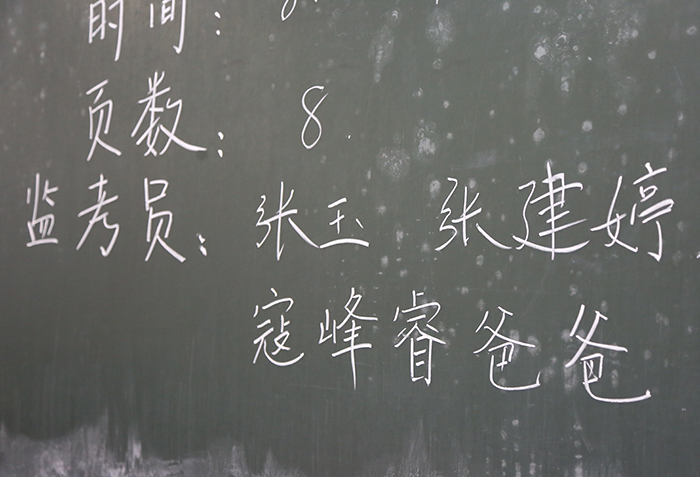 时间：
页数： 8.
监考员： 张玉 张建婷
寇峰睿爸爸